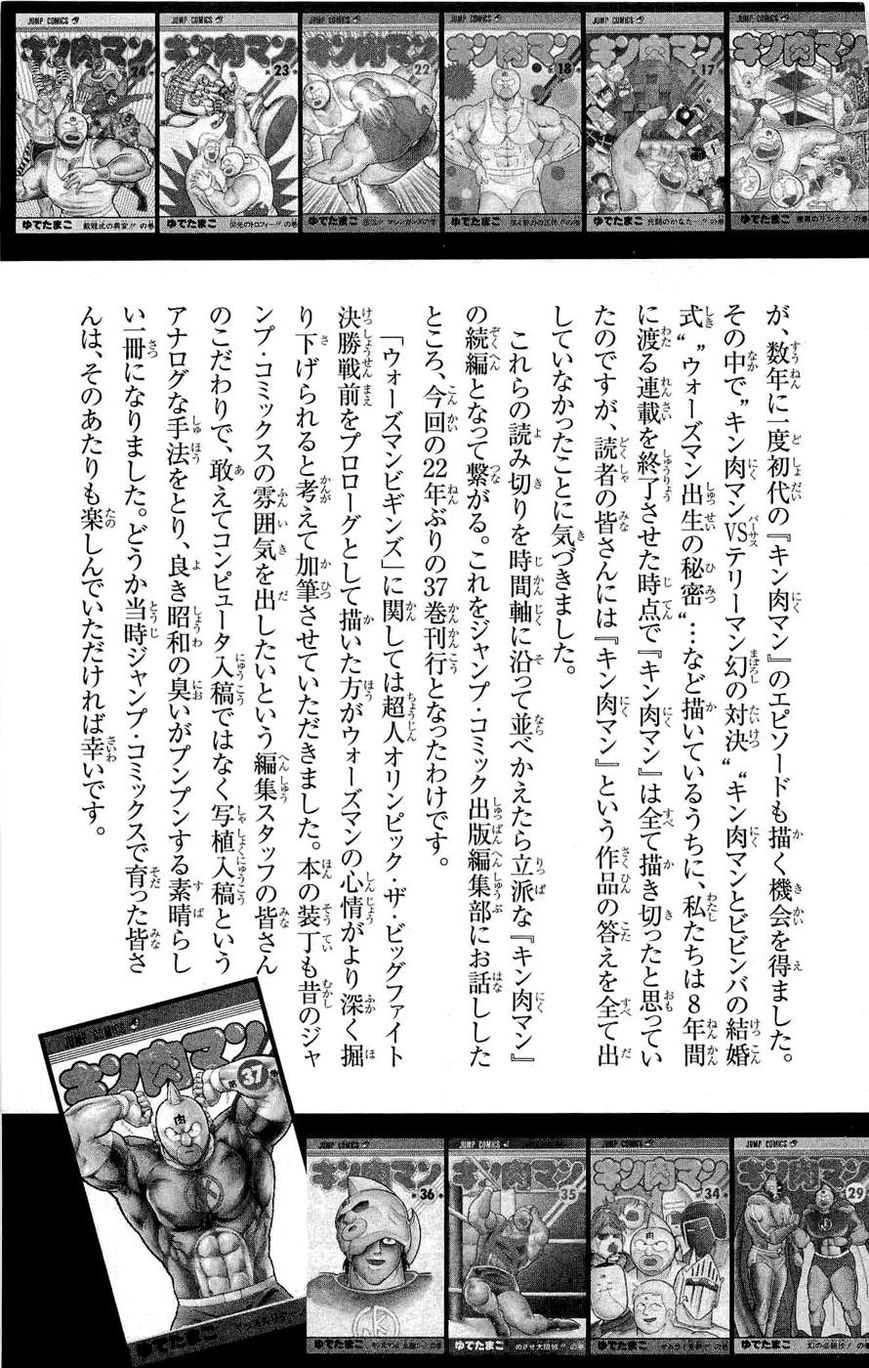 JUMP COMICS
キン肉マン
24
ゆでたまご
戴冠式の異変!!の巻
JUMP COMICS
キン肉マン
23
ゆでたまご
栄光のトロフィー!!の巻
JUMP COMICS
キン肉マン
22
ゆでたまご
JUMP COMICS
キン肉マン
18
ゆでたまご
JUMP COMICS
キン肉マン
17
ゆでたまご
光明のかなた…!!の巻
JUMP COMICS
キン肉マン
ゆでたまご
が、数年に一度初代の『キン肉マン』のエピソードも描く機会を得ました。
その中で〝キン肉マンVSテリーマン幻の対決〟〝キン肉マンとビビンバの結婚
式〟〝ウォーズマン出生の秘密〟…など描いているうちに、私たちは8年間
に渡る連載を終了させた時点で『キン肉マン』は全て描き切ったと思ってい
たのですが、読者の皆さんには『キン肉マン』という作品の答えを全て出
していなかったことに気づきました。
これらの読み切りを時間軸に沿って並べかえたら立派な『キン肉マン』
の続編となって繋がる。これをジャンプ・コミック出版編集部にお話しした
ところ、今回の22年ぶりの37巻刊行となったわけです。
「ウォーズマンビギンズ」に関しては超人オリンピック・ザ・ビッグファイト
決勝戦前をプロローグとして描いた方がウォーズマンの心情がより深く掘
り下げられると考えて加筆させていただきました。本の装丁も昔のジャ
ンプ・コミックスの雰囲気を出したいという編集スタッフの皆さん
のこだわりで、敢えてコンピュータ入稿ではなく写植入稿という
アナログな手法をとり、良き昭和の臭いがプンプンする素晴らし
い一冊になりました。どうか当時ジャンプ・コミックスで育った皆さ
んは、そのあたりも楽しんでいただければ幸いです。
JUMP COMICS
キン肉マン
第37巻
肉
ゆでたまご
JUMP COMICS
キン肉マン
36
ゆでたまご
JUMP COMICS
キン肉マン
35
ゆでたまご
めざせ大阪城!!の巻
JUMP COMICS
キン肉マン
34
ゆでたまご
JUMP COMICS
キン肉マン
29
ゆでたまご